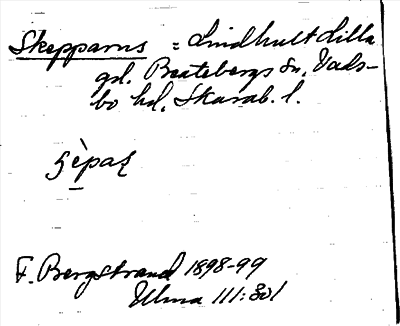 Skepparns = Lindhult Lilla
gd. Beatebergs sn, Vads-
bo hd, Skarab. l.
F. Bergstrand 1898-99
Ulma 111:301